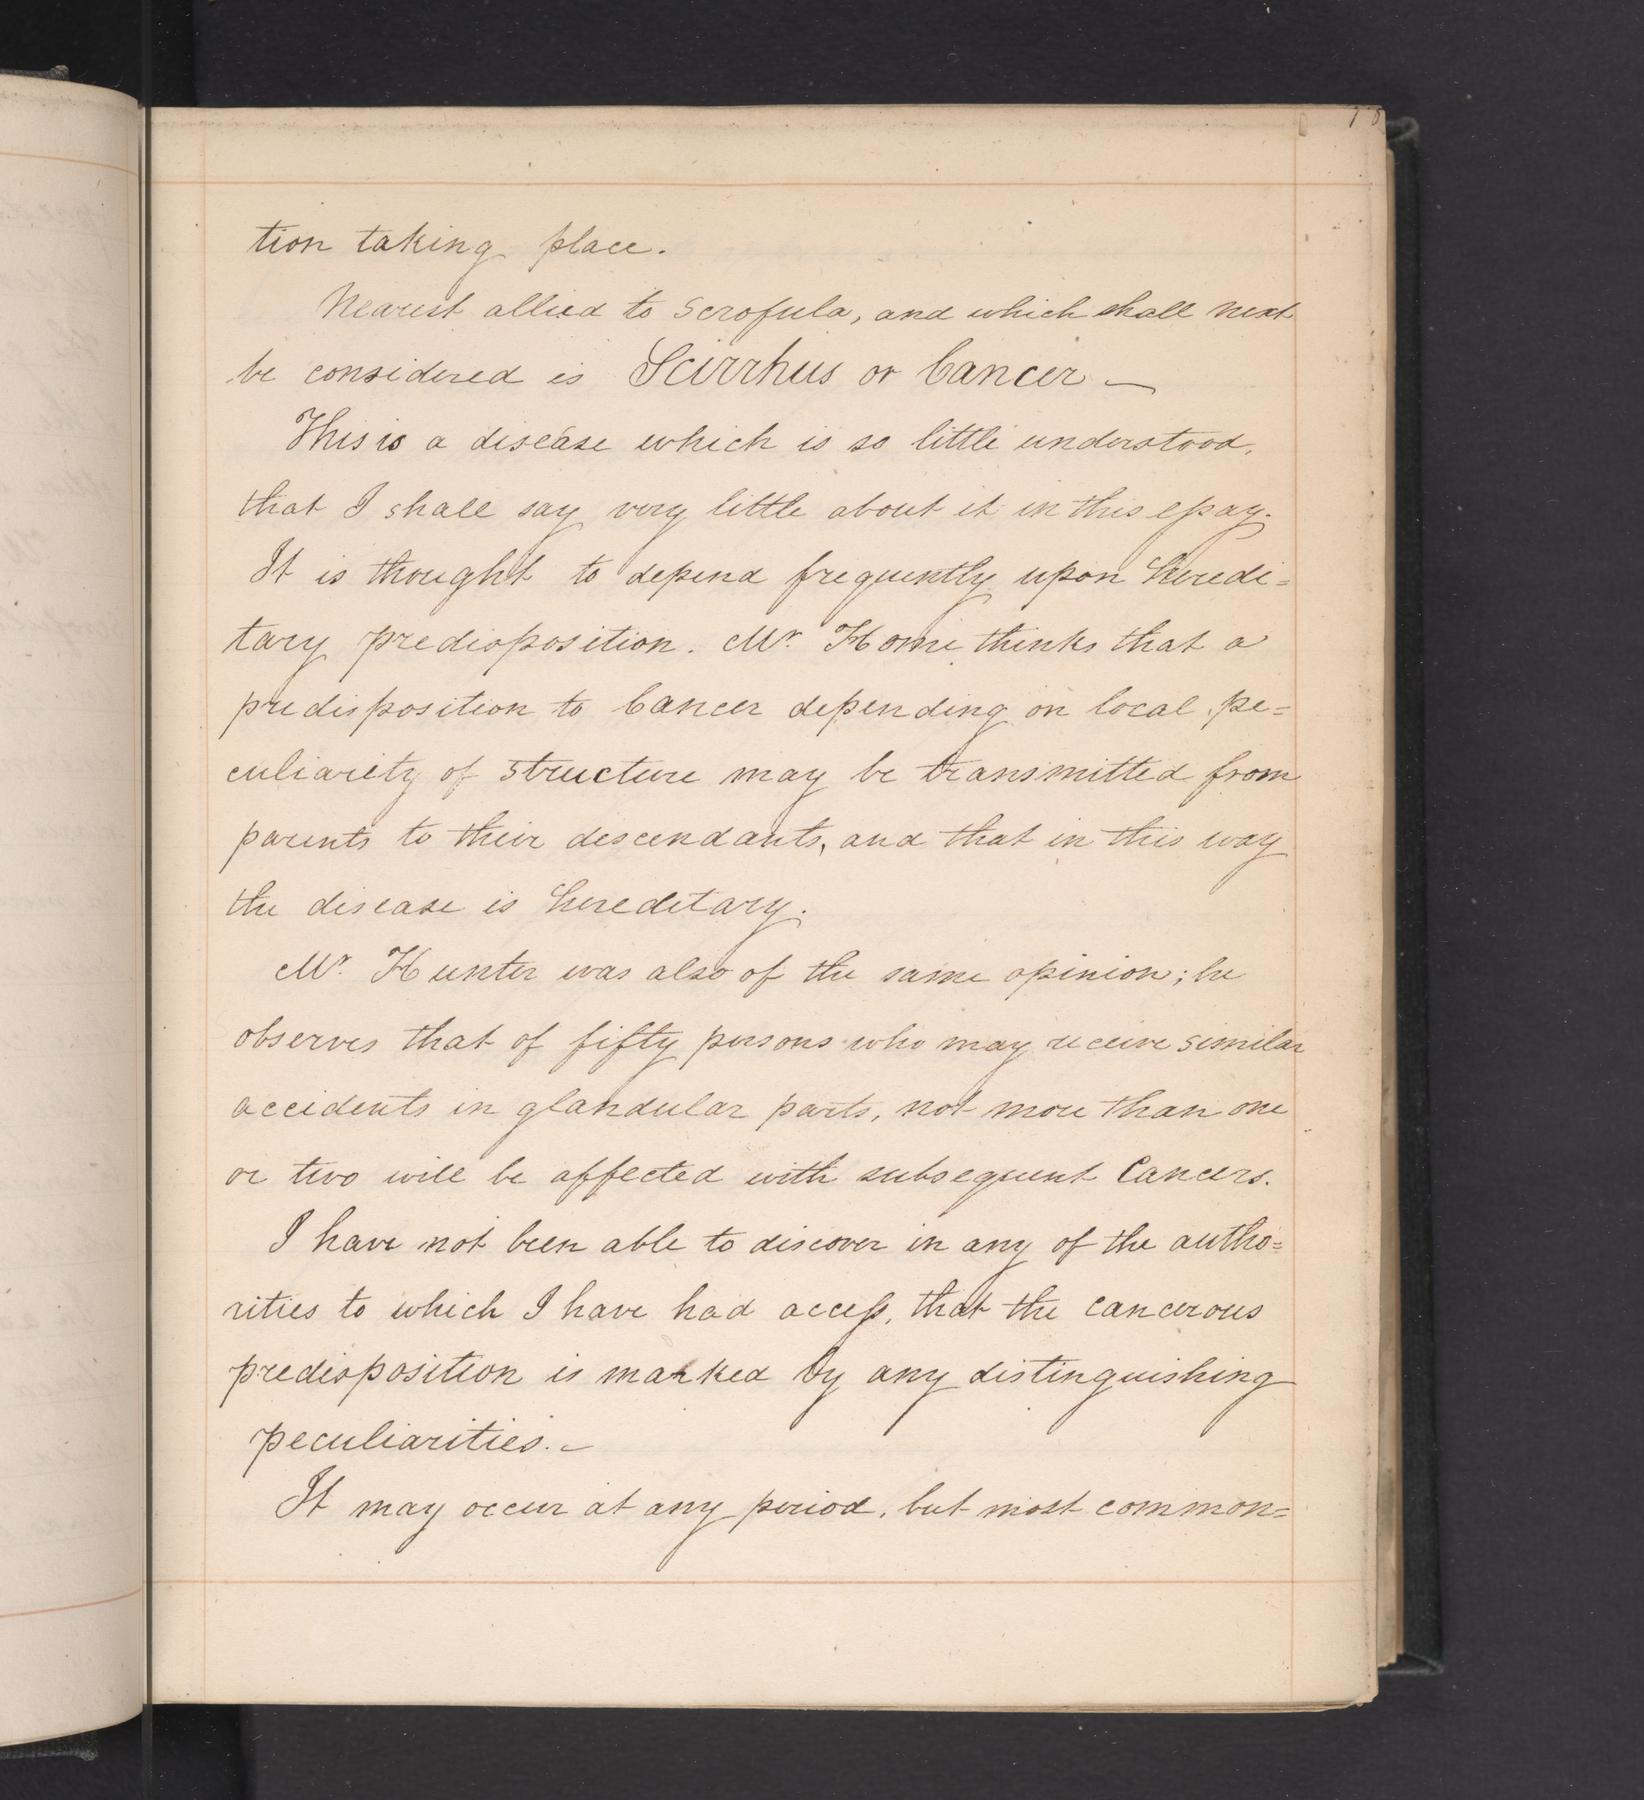 tion taking place.
Nearest allied to Scrofula, and which shall next
be considered is Scirrhus or Cancer —
This is a disease which is so little understood,
that I shall say very little about it in this eſsay.
It is thought to depend frequently upon heredi=
tary predisposition. Mr. Home thinks that a
predisposition to Cancer depending on local pe=
culiarity of structure may be transmitted from
parents to their descendants, and that in this way
the disease is hereditary.
Mr. Hunter was also of the same opinion; he
observes that of fifty persons who may receive similar
accidents in glandular parts, not more than one
or two will be affected with subsequent Cancers.
I have not been able to discover in any of the autho=
rities to which I have had acceſs, that the cancerous
predisposition is marked by any distinguishing
peculiarities. —
It may occur at any period, but most common=